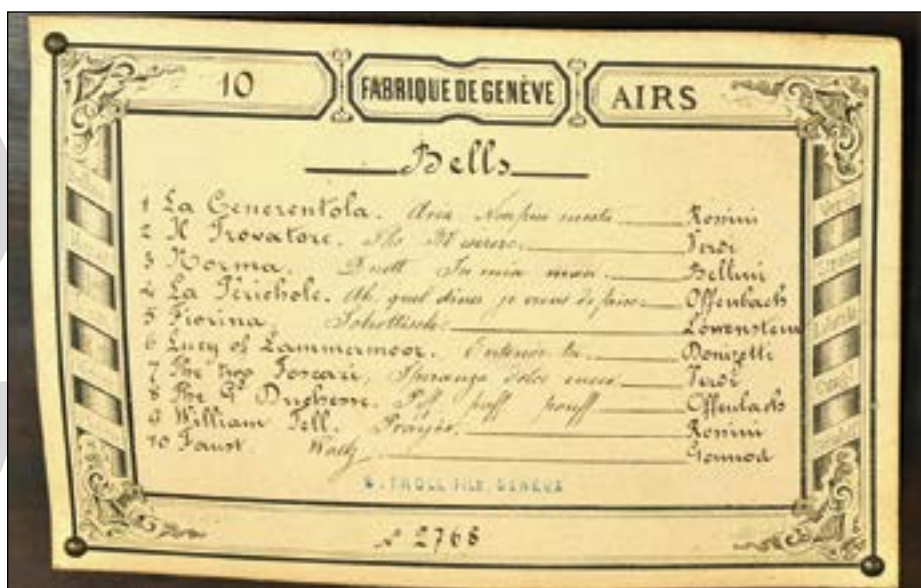 10 FABRIQUE DE GENÈVE AIRS
Bells
1 La Cenerentola. Aria Non piu mesta Rossini
2 Il Trovatore. The Miserere. Verdi
3 Norma. Duett In mia man. Bellini
4 La Périchole. Ah, quel diner je viens de faire. Offenbach
5 Fiorina. Schottische. Löwenstein
6 Lucy of Lammermoor. Donizetti
7 The two Foscari, Speranza dolce ancor Verdi
8 The Gd Duchesse. Piff paff pouff Offenbach
9 William Tell. Prayer. Rossini
10 Faust. Waltz. Gounod
B. TROLL FILS, GENÈVE
№ 2768